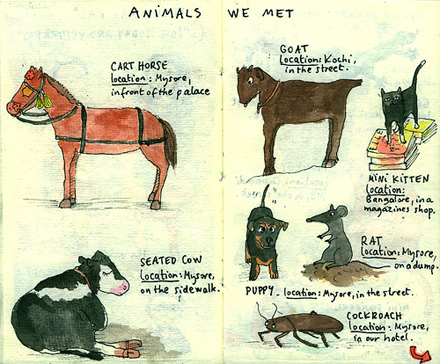 ANIMALS WE MET
CART HORSE
location: Mysore,
in front of the palace
GOAT
Location: Kochi,
in the street.
MINI KITTEN
location:
Bangalore, in a
magazines shop.
SEATED COW
Location: Mysore,
on the sidewalk.
RAT
Location: Mysore,
on a dump.
PUPPY. location: Mysore, in the street.
COCKROACH
Location: Mysore,
in our hotel.